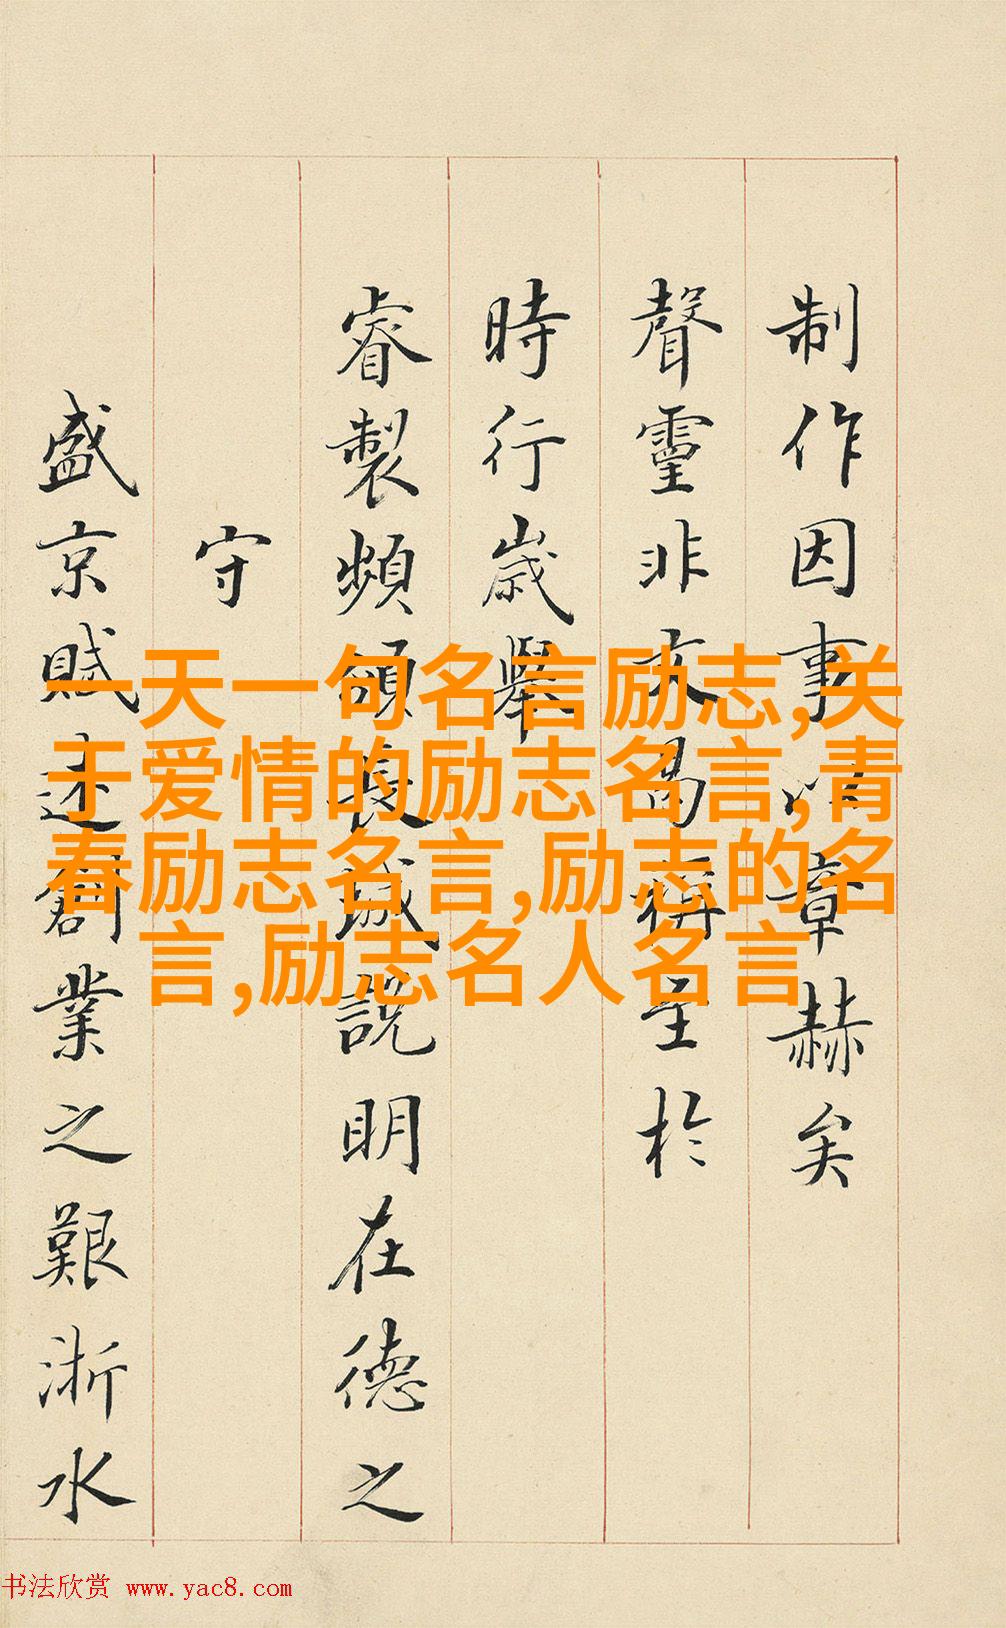 制作因事以章赫矣
聲靈非文曷稱至於
時行歲舉
睿製頻頒長城説明在德之
守
盛京賦述創業之艱浙水
一天一句名言励志,关
于爱情的励志名言,青
春励志名言,励志的名
言,励志名人名言
书法欣赏 www.yac8.com